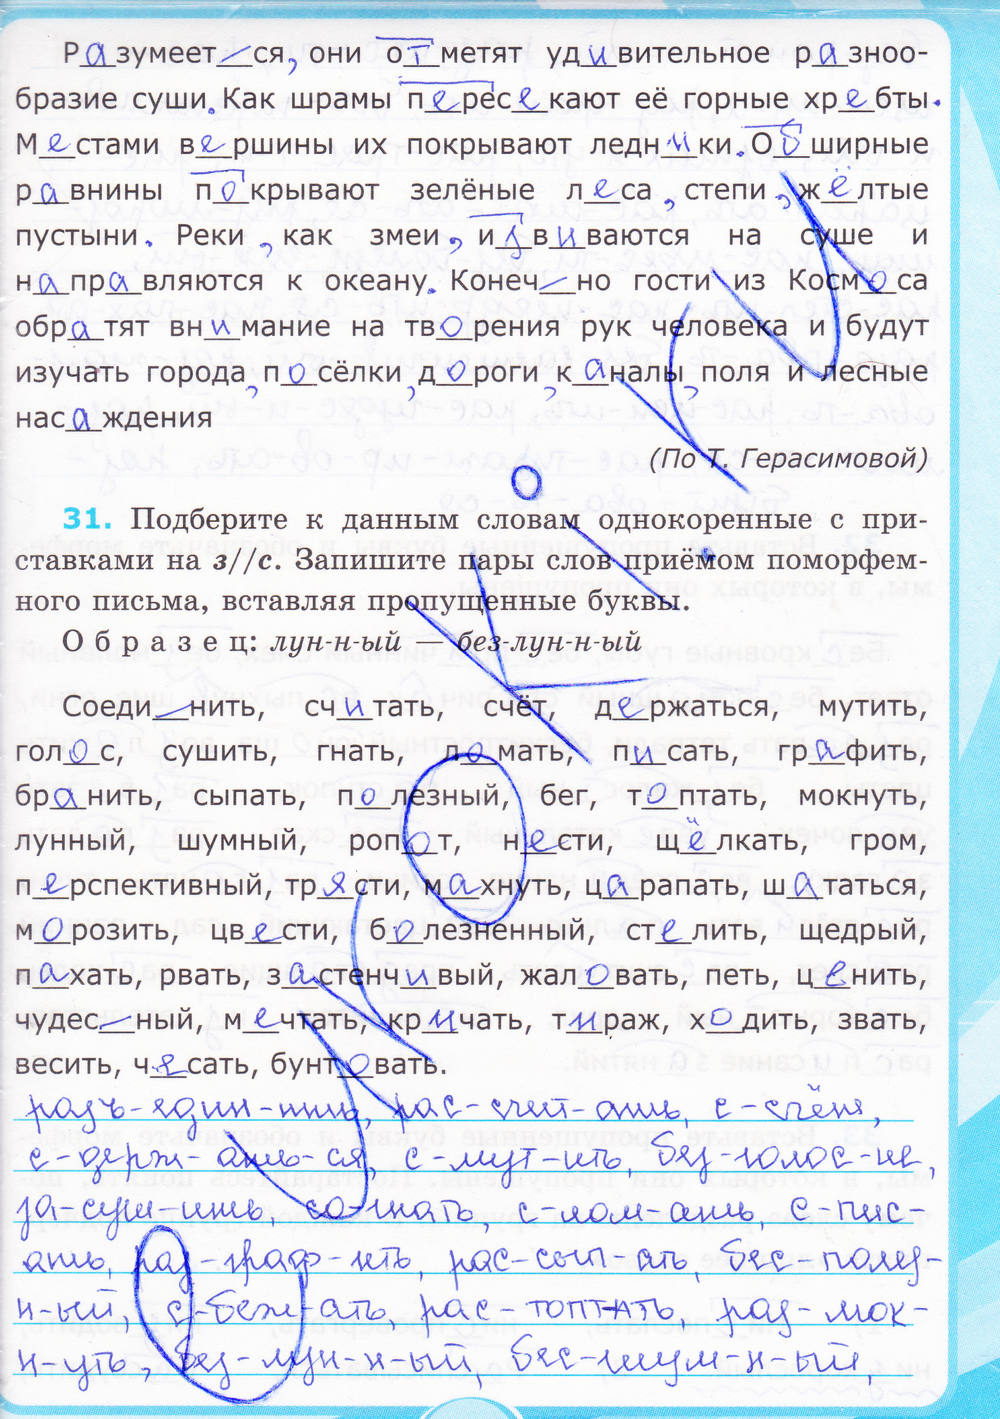 Разумеет—ся, они отметят удивительное разнооб-
бразие суши. Как шрамы пересекают её горные хребты.
Местами вершины их покрывают ледники. Обширные
равнины покрывают зелёные леса, степи, жёлтые
пустыни. Реки, как змеи, извиваются на суше и
направляются к океану. Конеч—но гости из Космоса
обратят внимание на творения рук человека и будут
изучать города, посёлки, дороги, каналы, поля и лесные
насаждения
(По Т. Герасимовой)
31. Подберите к данным словам однокоренные с при-
ставками на з//с. Запишите пары слов приёмом поморфем-
ного письма, вставляя пропущенные буквы.
Образец: лун-н-ый — без-лун-н-ый
Соеди—нить, считать, счёт, держаться, мутить,
голос, сушить, гнать, ломать, писать, графить,
бранить, сыпать, полезный, бег, топтать, мокнуть,
лунный, шумный, ропот, нести, щёлкать, гром,
перспективный, трясти, махнуть, царапать, шататься,
морозить, цвести, болезненный, стелить, щедрый,
пахать, рвать, застенчивый, жаловать, петь, ценить,
чудес—ный, мечтать, кричать, тираж, ходить, звать,
весить, чесать, бунтовать.
разъ-един-ить, рас-счит-ать, с-счёт,
с-держ-ать-ся, с-мут-ить, без-голос-не,
за-суш-ить, со-гнать, с лом-ать, с пис-
ать, раз-граф-ить, рас-сып-ать, бес-полез-
н-ый, с-беж-ать, рас-топтать, раз-мок-
н-уть, без-лун-н-ый, бес-шум-н-ый,